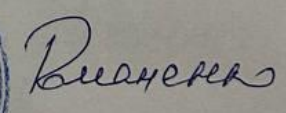 Романенко